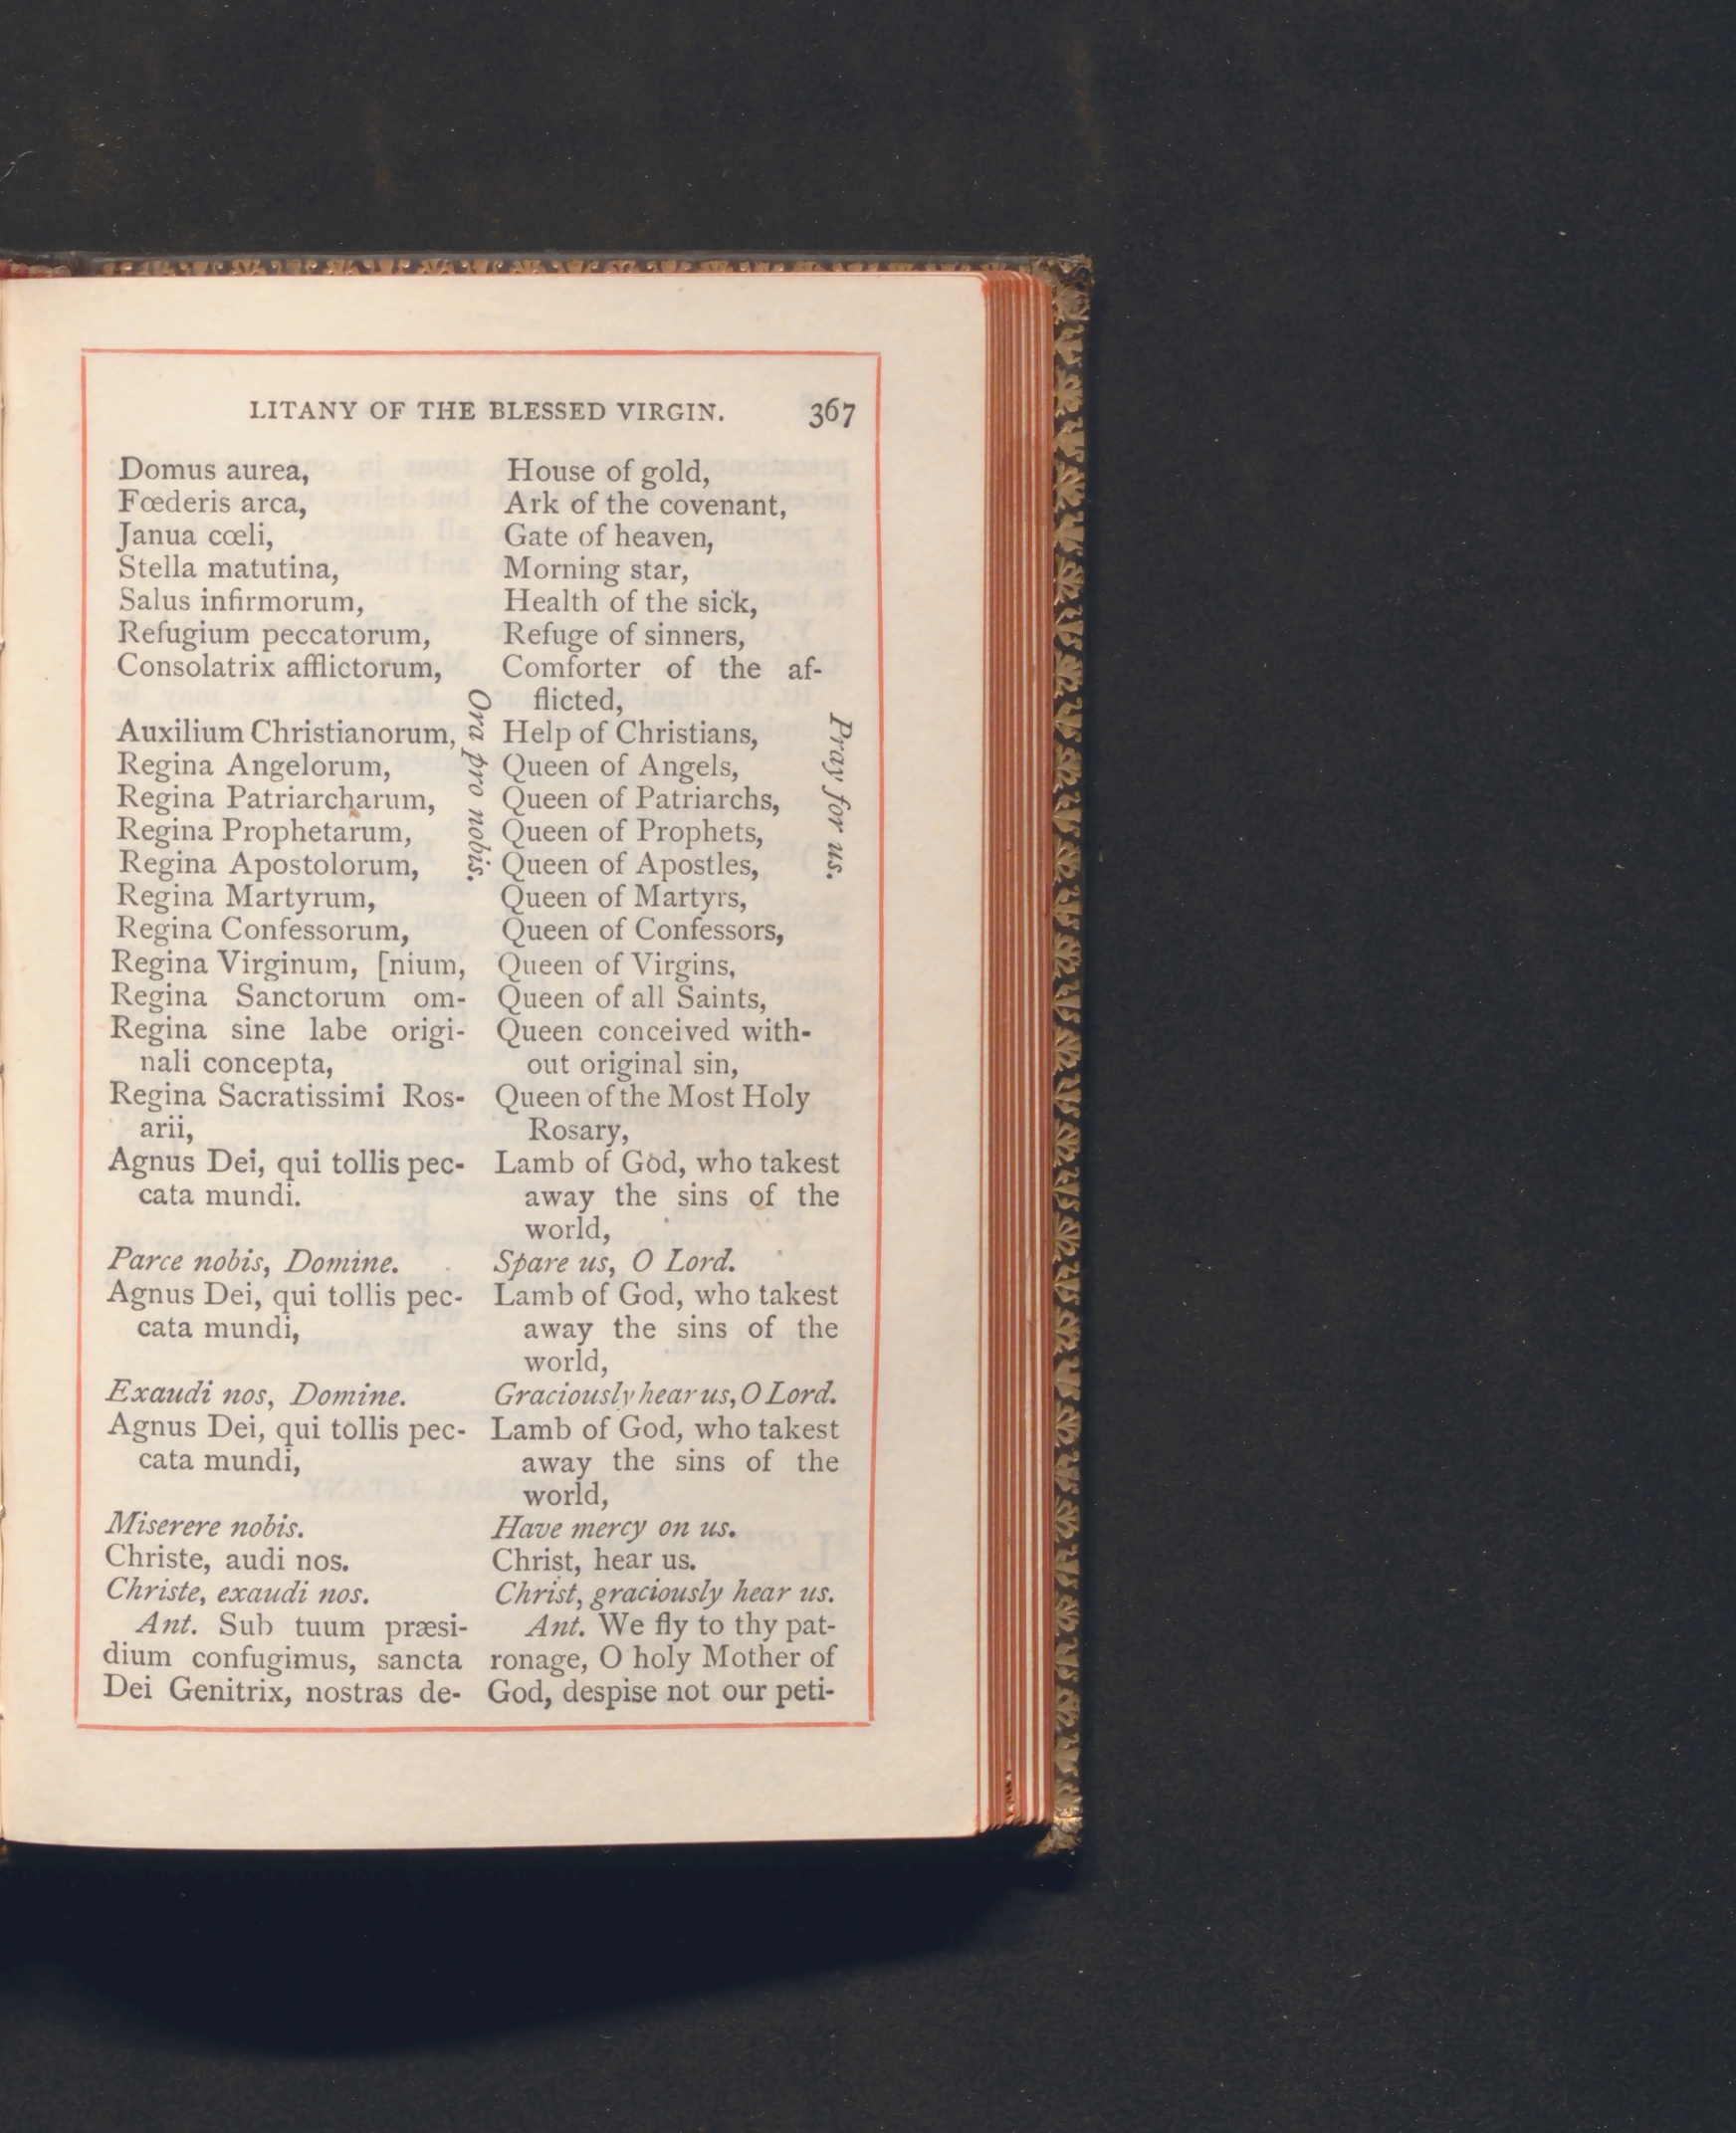 LITANY OF THE BLESSED VIRGIN. 367
Domus aurea,
Fœderis arca,
Janua cœli,
Stella matutina,
Salus infirmorum,
Refugium peccatorum,
Consolatrix afflictorum,
Auxilium Christianorum,
Regina Angelorum,
Regina Patriarcharum,
Regina Prophetarum,
Regina Apostolorum,
Regina Martyrum,
Regina Confessorum,
Regina Virginum, [nium,
Regina Sanctorum om-
Regina sine labe origi-
nali concepta,
Regina Sacratissimi Ros-
arii,
Agnus Dei, qui tollis pec-
cata mundi.
Parce nobis, Domine.
Agnus Dei, qui tollis pec-
cata mundi,
Exaudi nos, Domine.
Agnus Dei, qui tollis pec-
cata mundi,
Miserere nobis.
Christe, audi nos.
Christe, exaudi nos.
Ant. Sub tuum præsi-
dium confugimus, sancta
Dei Genitrix, nostras de-
Ora pro nobis.
House of gold,
Ark of the covenant,
Gate of heaven,
Morning star,
Health of the sick,
Refuge of sinners,
Comforter of the af-
flicted,
Help of Christians,
Queen of Angels,
Queen of Patriarchs,
Queen of Prophets,
Queen of Apostles,
Queen of Martyrs,
Queen of Confessors,
Queen of Virgins,
Queen of all Saints,
Queen conceived with-
out original sin,
Queen of the Most Holy
Rosary,
Lamb of God, who takest
away the sins of the
world,
Spare us, O Lord.
Lamb of God, who takest
away the sins of the
world,
Graciously hear us, O Lord.
Lamb of God, who takest
away the sins of the
world,
Have mercy on us.
Christ, hear us.
Christ, graciously hear us.
Ant. We fly to thy pat-
ronage, O holy Mother of
God, despise not our peti-
Pray for us.